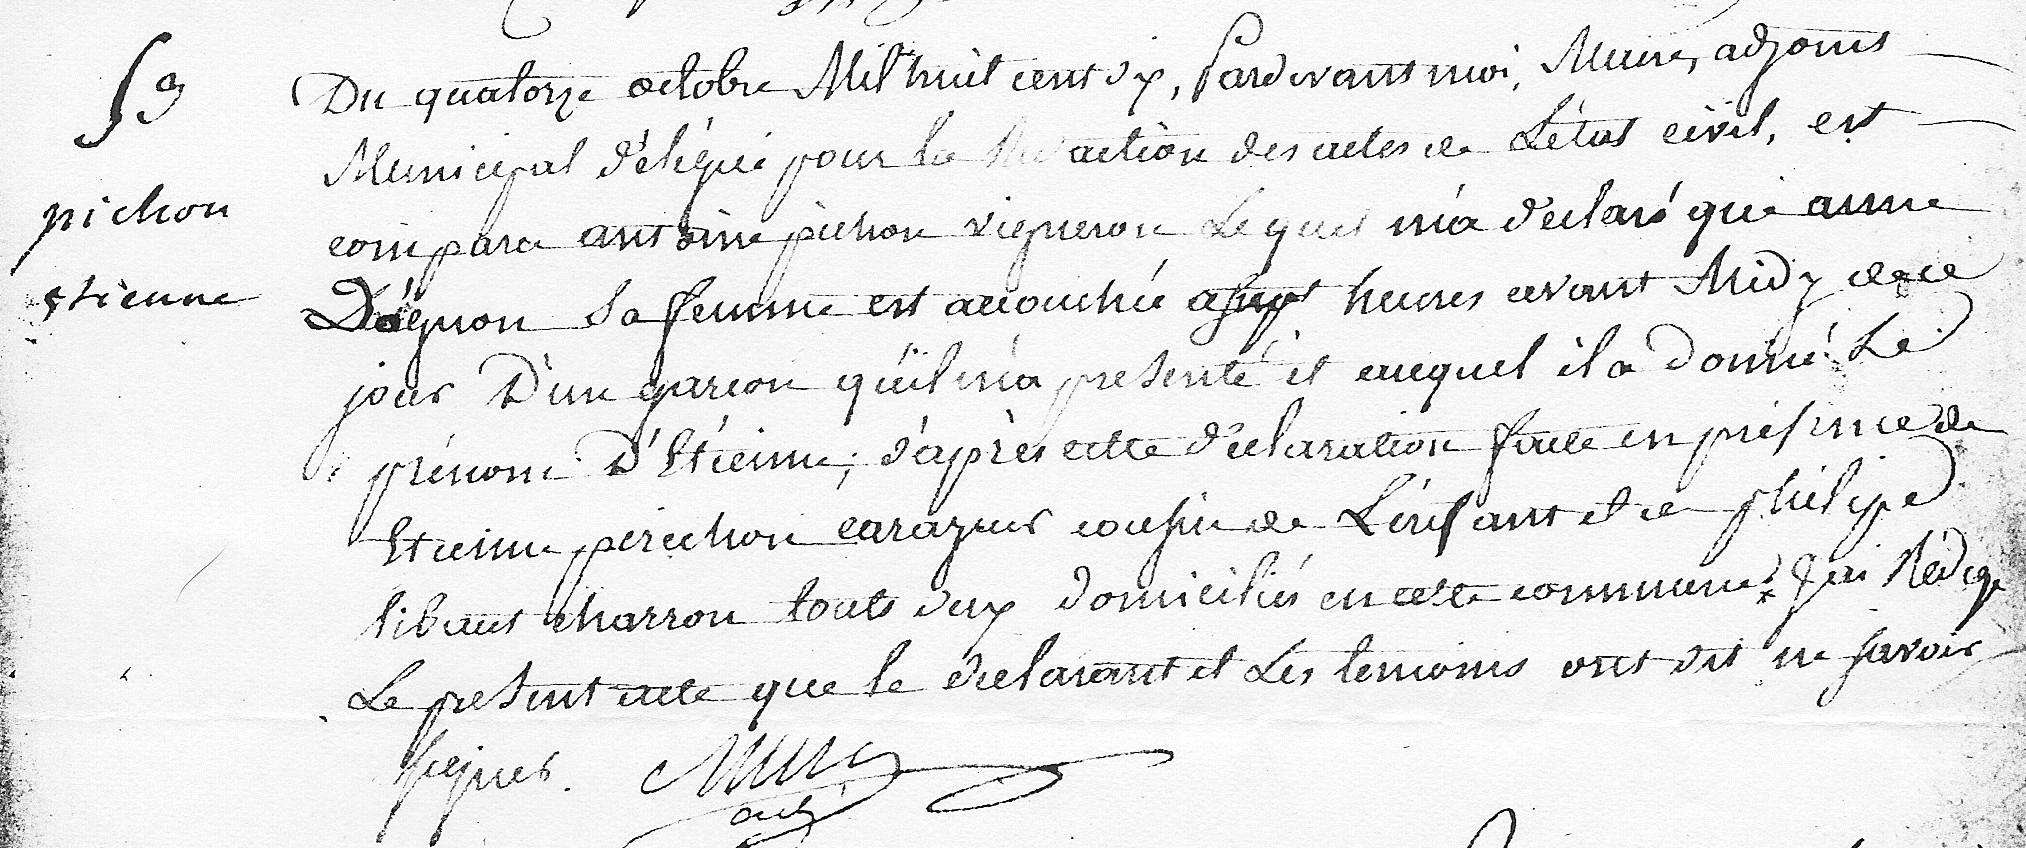 59
pichon
etienne
Du quatorze octobre Mil huit cent dix, Pardevant moi, Mure, adjoint
Municipal délégué pour la Rédaction des actes de L'état civil, est
comparu antoine pichon vigneron Lequel m'a déclaré que anne
Dagnon Sa femme est accouchée a sept heures avant Midy de ce
jour D'un garcon qu'il m'a présenté et auquel il a Donné Le
prénom D'Etienne; d'après cette déclaration faite en présence de
Etienne cousin de L'enfant et de philipe
tibaut charron touts deux domiciliés en cette commune J'ai Rédigé
Le present acte que le declarant et Les temoins ont dit ne savoir
signer. Mure
adj